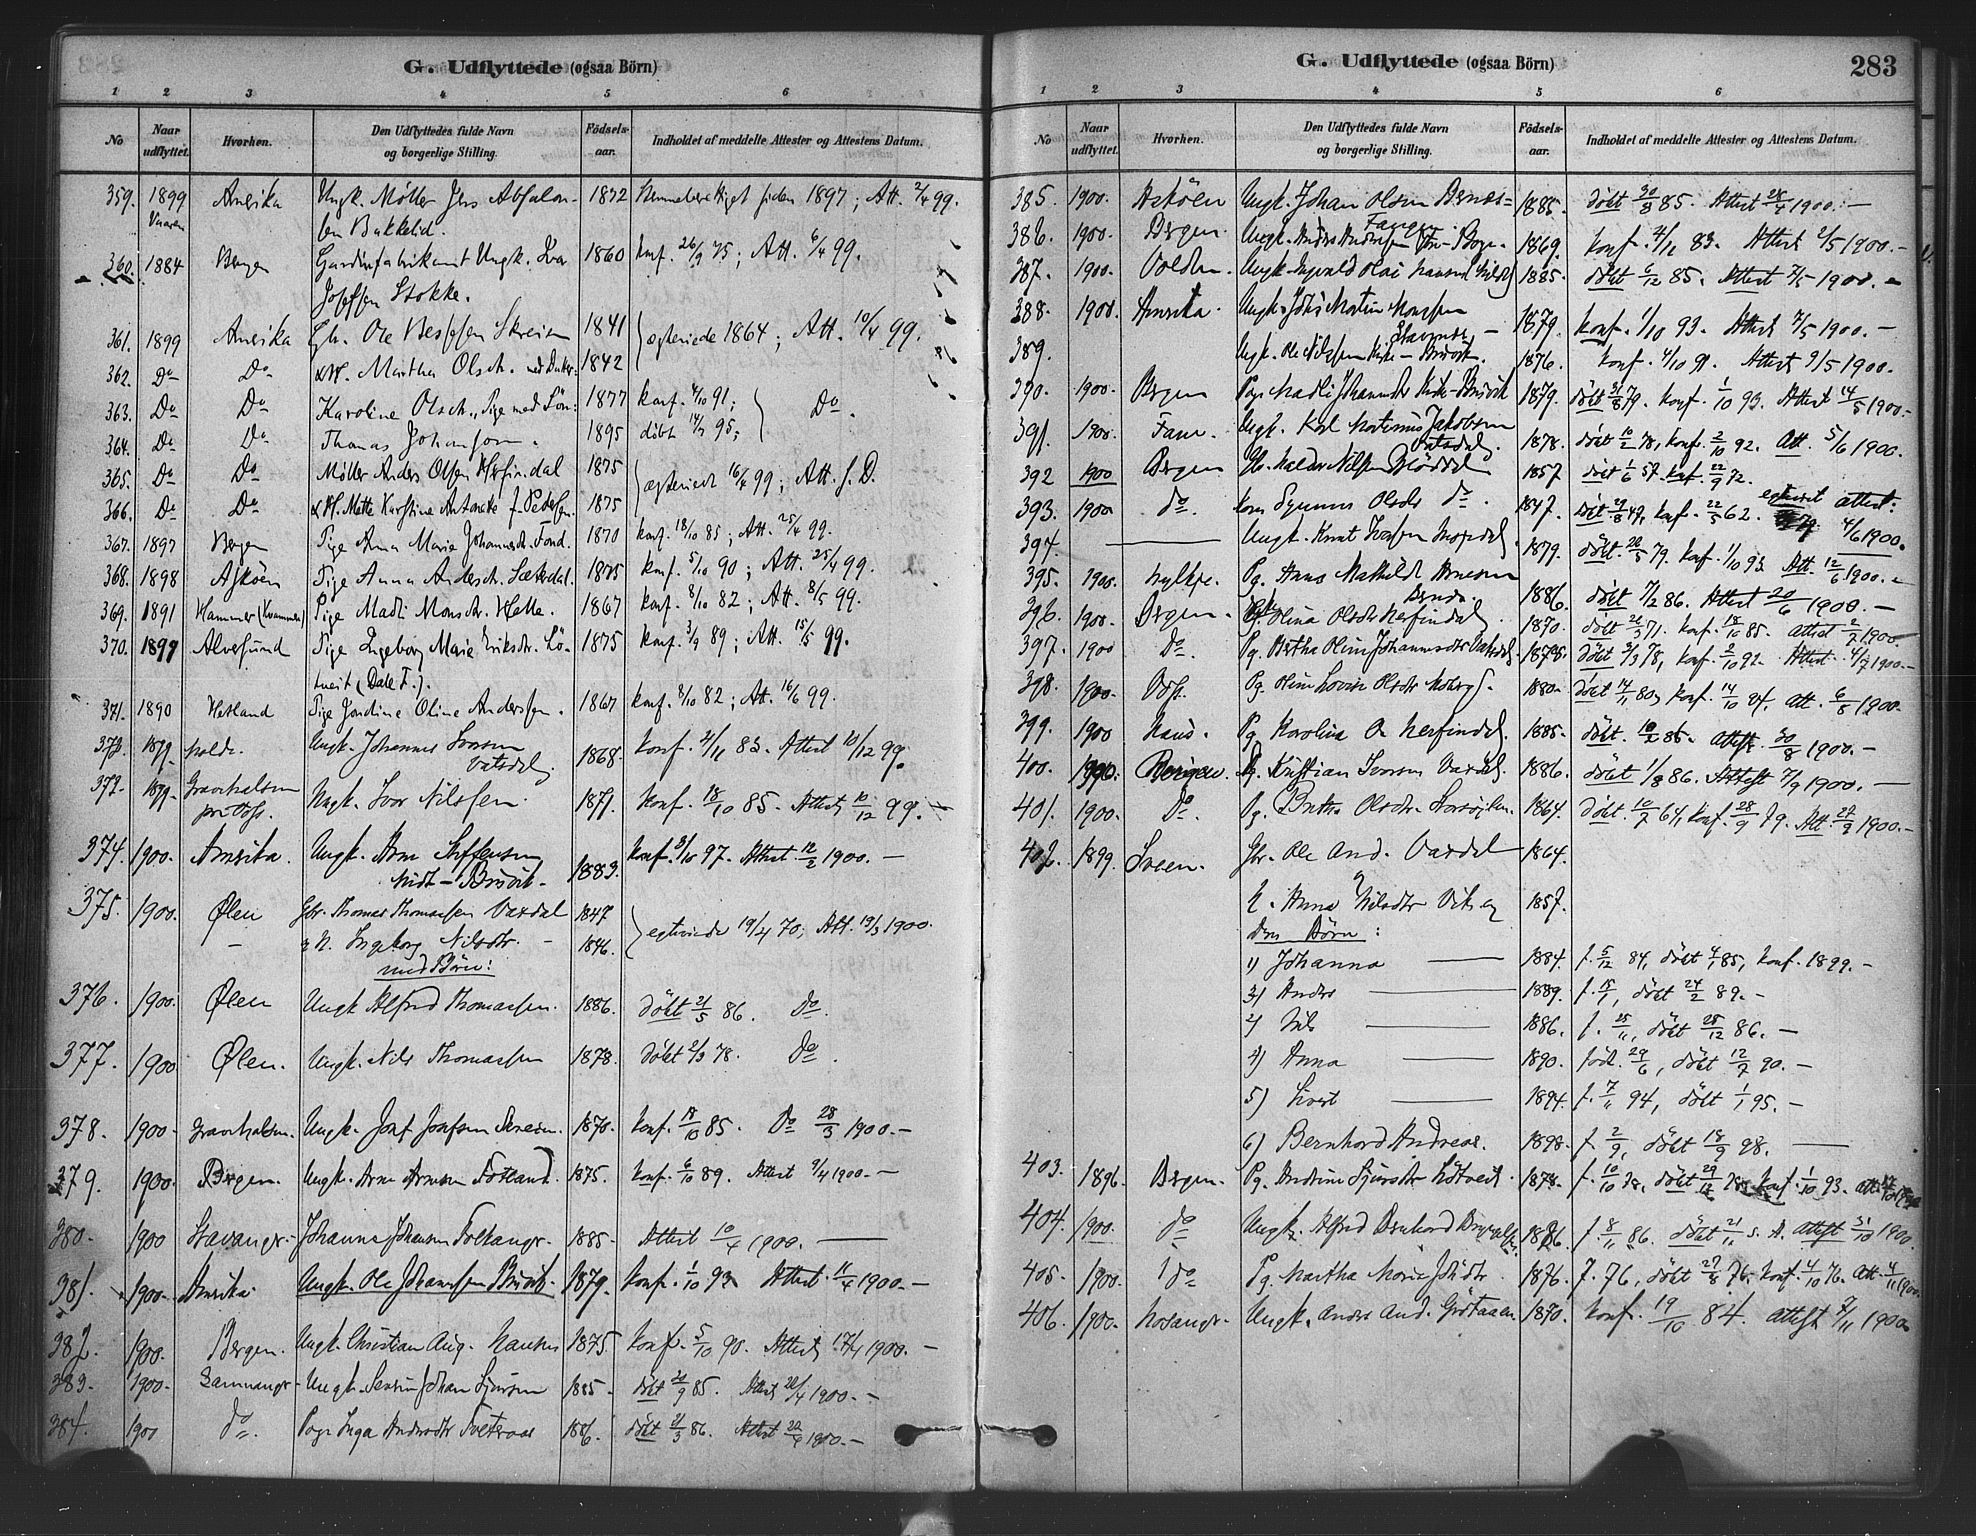 G. Udflyttede (ogsaa Börn)
1 2 3 4 5 6
No Naar udflyttet. Hvorhen. Den Udflyttedes fulde Navn og borgerlige Stilling. Födsels-aar. Indholdet af meddelte Attester og Attestens Datum.
359. 1899 Vaaren Amerika Ungk. Møller Jens Absalon- 1872 hjemmefra siden 1897; Att. 2/4 99.
sen Bakkelid.
360. 1884 Bergen Gardinfabrikant Ungk. Ivar 1860 konf. 26/9 75; Att. 6/4 99.
Josefsen Stokke.
361. 1899 Amerika Gh. Ole Bessesen Skreien 1841 ægteviede 1864; Att. 10/4 99.
362. Do Do & H. Martha Olsdr. med Datter 1842
363. Do Do Karoline Olsdr., Pige med Søn: 1877 konf. 4/10 91; Do.
364. Do Do Thomas Johansson. 1895 døbt 14/7 95;
365. Do Do Møller Anders Olsen Herfindal 1875 ægteviet 16/4 99; Att. s. D.
366. Do Do & H. Mette Karstine Antonette f. Pedersen. 1875
367. 1897 Bergen Pige Anna Marie Johannesdr. Fond. 1870 konf. 18/10 85; Att. 25/4 99.
368. 1898 Askøen Pige Anna Andersdr. Sætredal. 1875 konf. 5/10 90; Att. 25/4 99.
369. 1891 Hammer (Kvammen) Pige Madli Monsdr. Helle. 1867 konf. 8/10 82; Att. 8/5 99.
370. 1899 Alversund Pige Ingeborg Marie Eriksdr. Lø- 1875 konf. 3/9 89; Att. 15/5 99.
tveit (Dale F.).
371. 1890 Hetland Pige Jondine Oline Anderssen. 1867 konf. 8/10 82; Att. 16/6 99.
372. 1899. Molde. Ungk. Johannes Ivarsen 1868. konf. 4/11 83. Attest 10/12 99.
Vatsdal
373. 1899. Gravehalsen Ungk. Ivar Nilssen. 1871. konf. 18/10 85. Attest 10/12 99.
pr. Voss.
374. 1900. Amerika. Ungk. Arne Steffensen 1883. konf. 3/10 97. Attest 12/2 1900. —
Midt-Bruvik.
375. 1900. Ølen Gbr. Thomas Thomassen Vaxdal 1847 egteviede 19/4 70; Att. 19/3 1900.
— & H. Ingeborg Nilsdtr. 1846.
med Börn:
376. 1900. Ølen Ungk. Alfred Thomassen. 1886. döbt 21/5 86. Do.
377. 1900 Ølen. Ungk. Nils Thomassen 1878. döbt 2/3 78. Do.
378. 1900 Gravehalsen. Ungk. Josef Josefsen Skreien. 1870. konf. 18/10 85. Do 28/3 1900. —
379. 1900. Bergen. Ungk. Arne Arnesen Fotland. 1875. konf. 6/10 89. Attest 9/4 1900. —
380. 1900 Stavanger Johannes Johansen Foltanger. 1885. Attest 10/4 1900.
381. 1900. Amerika. Ungk. Ole Johannessen Bruvik. 1879. konf. 1/10 93. Attest 11/4 1900. —
382. 1900. Bergen. Ungk. Christian Aug. Hansen 1875 konf. 5/10 90. Attest 17/4 1900. —
383. 1900. Samnanger Ungk. Severin Johan Sjursen 1885. döbt 20/9 85. Attest 20/4 1900. —
384. 1900 do. Pige Inga Andersdtr Tveteraas 1886. döbt 21/3 86. Attest 20/4 1900. —
G. Udflyttede (ogsaa Börn)
283
1 2 3 4 5 6
No Naar udflyttet. Hvorhen. Den Udflyttedes fulde Navn og borgerlige Stilling. Födsels-aar. Indholdet af meddelte Attester og Attestens Datum.
385. 1900. Askøen Ungk. Johan Olsen 1885. döbt 30/8 85. Attest 28/4 1900. —
386. 1900. Bergen. Ungk. Anders Andersen 1869. konf. 4/11 83. Attest 2/5 1900. —
387. 1900. Volden. Ungk. Ingvald Olai Hansen 1885. döbt 6/12 85. Attest 7/5 1900. —
388. 1900. Amerika. Ungk. Johs Martin Monssen 1879. konf. 1/10 93. Attest 7/5 1900. —
389. Ungk. Ole Nilssen Kirke-Bruvik. 1876. konf. 4/10 91. Attest 9/5 1900.
390. 1900. Bergen Pige Madli Johannesdtr Kirke-Bruvik 1879. döbt 31/8 79. konf. 1/10 93. Attest 14/5 1900. —
391. 1900. Fane. Ungk. Karl Martinus Jakobsen 1878. döbt 10/2 78, konf. 2/10 92. Att. 5/6 1900.
Vatsdal.
392 1900 Bergen Gbr. Haldor Nilsen 1857 döbt 1/6 57. konf. 22/9 72.
393. 1900 do. kone Synneve Olsdtr do. 1847. döbt 29/8 47, konf. 22/5 62. egteviet Attest:
394. — Ungk. Knut Ivarsen 1879. döbt 26/5 79. konf. 1/10 93. Att. 12/6 1900. —
4/6 1900.
395. 1900. Pg. Anna Mathilde Arnesen 1886. döbt 7/2 86. Attest 20/6 1900. —
396. 1900. Bergen. Pg. Olina Olsdtr Herfindal. 1870. döbt 26/3 71. konf. 18/10 85. Attest 2/7 1900
397. 1900 Do. Pg. Bertha Oline Johannesdtr Vatsdal. 1878. döbt 3/3 78, konf. 2/10 92. Attest 4/7 1900. —
398. 1900. Voss. Pg. Oline Lovise Olsdtr 1880. döbt 14/11 80, konf. 14/10 94. Att. 6/8 1900.
399. 1900 Haus. Pg. Karolina O. Herfindal. 1885. döbt 10/2 85. Attest 30/8 1900. —
400. 1900. Bergen. Kristian Vaxdal. 1886. döbt 1/8 86. Attest 7/9 1900. —
401. 1900. Do. Pg. Brita Olsdtr 1864. döbt 10/7 64, konf. 28/9 79. Att. 27/9 1900. —
402. 1899. Sveen. Gbr. Ole And. Vaxdal 1864.
H. Anna Nilsdtr 1857.
Deres Börn:
1) Johanna 1884. f. 5/12 84, döbt 4/1 85, konf. 1899. —
3) Anders 1889. f. 15/1, döbt 24/2 89. —
2) Nils 1886. f. 25/11, döbt 28/12 86. —
4) Anna 1890. född. 29/6, döbt 12/7 90. —
5) Sivert 1894. f. 7/11 94, döbt 1/1 95. —
6) Bernhard Andreas. 1898. f. 2/9, döbt 18/9 98. —
403. 1896. Bergen. Pg. Andrine Sjursdtr Lötveit. 1878. f. 10/10 78, döbt 29/12 78, konf. 1/10 93.
404. 1900. do Ungk. Alfred Bernhard 1886. f. 8/11 86. döbt 21/11 s. A. Attest 31/10 1900.
405. 1900. do Pg. Martha Marie Johsdtr 1876. f. 76, döbt 27/8 76. konf. 4/10 76. Att. 4/11 1900.
406. 1900. Hosanger. Ungk. Anders And. Gröttaaen 1870. konf. 19/10 84. Attest 7/11 1900